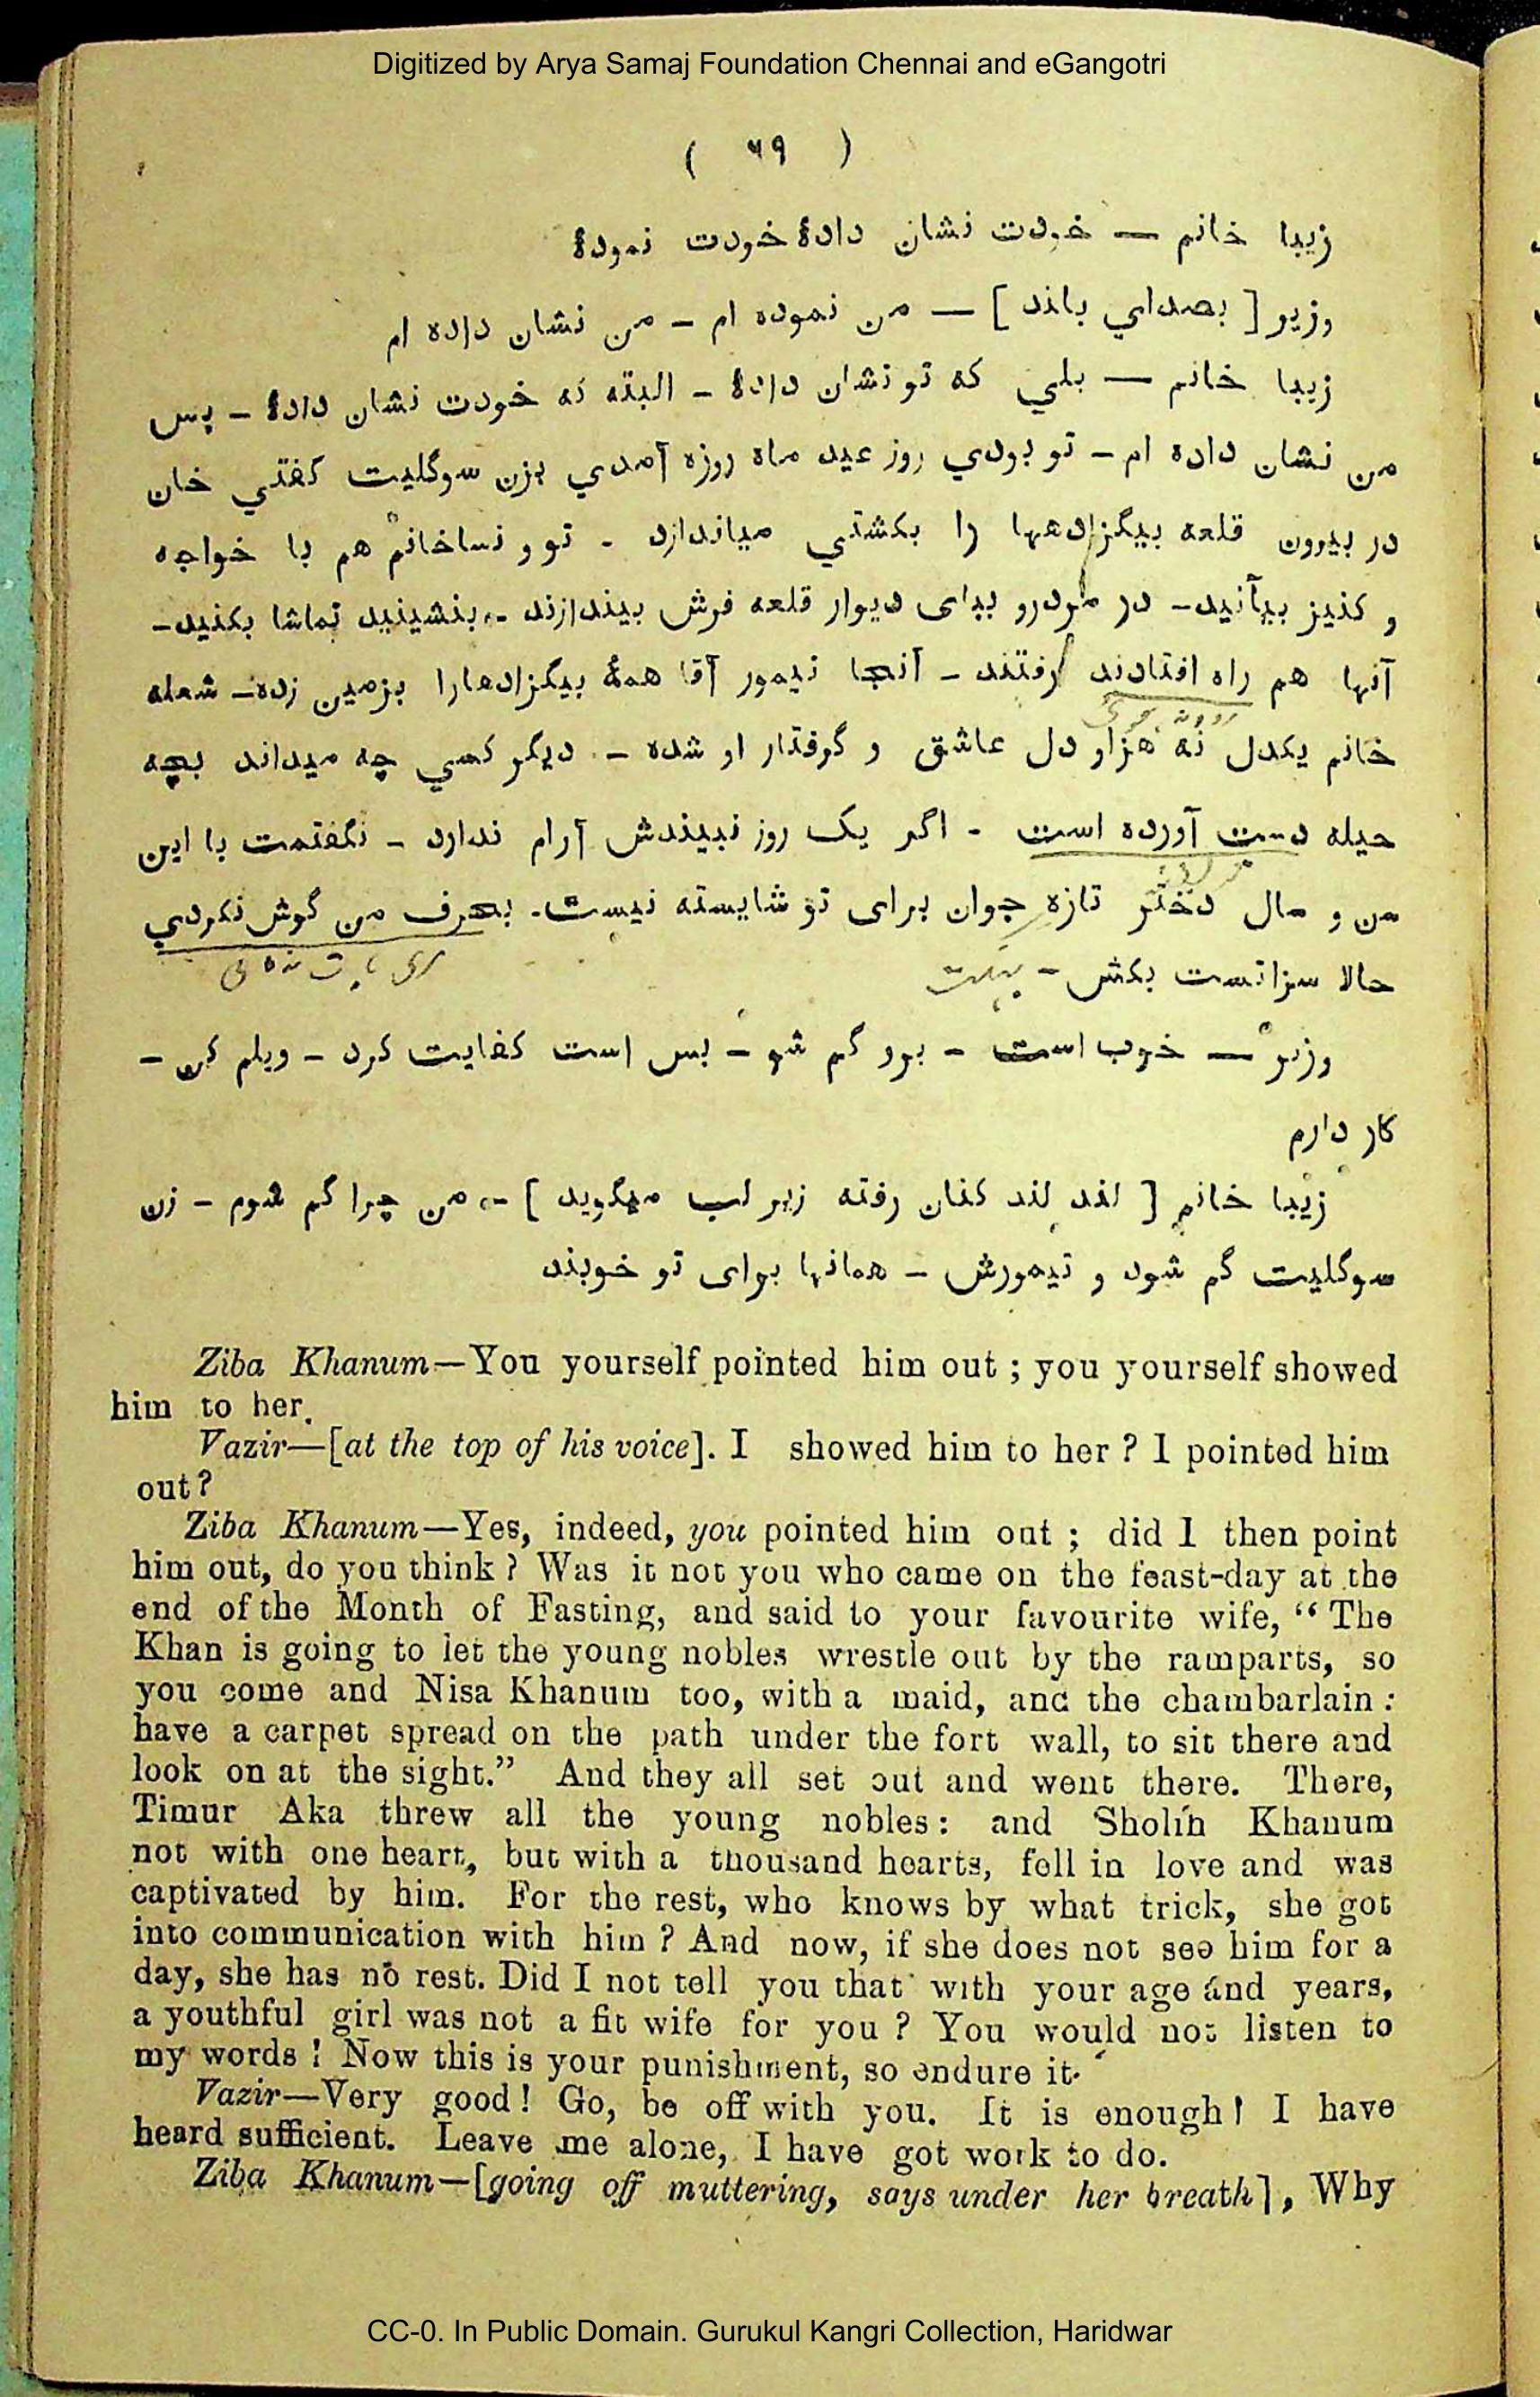 Digitized by Arya Samaj Foundation Chennai and eGangotri
( ۶۹ )
زیبا خانم — خودت نشان دادۀ خودت نمودۀ
وزیر [ بصدای بلند ] — من نموده ام — من نشان داده ام
زیبا خانم — بلي که تو نشان دادۀ — البته که خودت نشان دادۀ — پس
من نشان داده ام — تو بودي روز عید ماه روزه آمدي بزن سوگلیت گفتي خان
در بیرون قلعه بیگزادهها را بکشتي میاندازد - تو و نساخانم هم با خواجه
و کنیز بیآئید — در مردرو بپای دیوار قلعه فرش بیندازند — بنشینید تماشا بکنید —
آنها هم راه افتادند رفتند — آنجا تیمور آقا همۀ بیگزادهارا بزمین زده — شعله
خانم یکدل نه هزار دل عاشق و گرفتار او شده — دیگر کسي چه میداند بچه
حیله دست آورده است - اگر یک روز نبیندش آرام ندارد — نگفتمت با این
سن و سال دختر تازه جوان برای تو شایسته نیست - بحرف من گوش نکردي
حالا سزاتست بکش —
وزیر — خوب است — برو گم شو — بس است کفایت کرد — ویلم کن —
کار دارم
زیبا خانم [ لند لند کنان رفته زیر لب میگوید ] — من چرا گم شوم — زن
سوگلیت گم شود و تیمورش — همانها برای تو خوبند
Ziba Khanum—You yourself pointed him out ; you yourself showed
him to her.
Vazir—[at the top of his voice]. I showed him to her ? I pointed him
out ?
Ziba Khanum—Yes, indeed, you pointed him out ; did I then point
him out, do you think ? Was it not you who came on the feast-day at the
end of the Month of Fasting, and said to your favourite wife, “ The
Khan is going to let the young nobles wrestle out by the ramparts, so
you come and Nisa Khanum too, with a maid, and the chambarlain :
have a carpet spread on the path under the fort wall, to sit there and
look on at the sight.” And they all set out and went there. There,
Timur Aka threw all the young nobles : and Sholih Khanum
not with one heart, but with a thousand hearts, fell in love and was
captivated by him. For the rest, who knows by what trick, she got
into communication with him ? And now, if she does not see him for a
day, she has no rest. Did I not tell you that with your age and years,
a youthful girl was not a fit wife for you ? You would not listen to
my words ! Now this is your punishment, so endure it.
Vazir—Very good ! Go, be off with you. It is enough ! I have
heard sufficient. Leave me alone, I have got work to do.
Ziba Khanum—[going off muttering, says under her breath], Why
CC-0. In Public Domain. Gurukul Kangri Collection, Haridwar